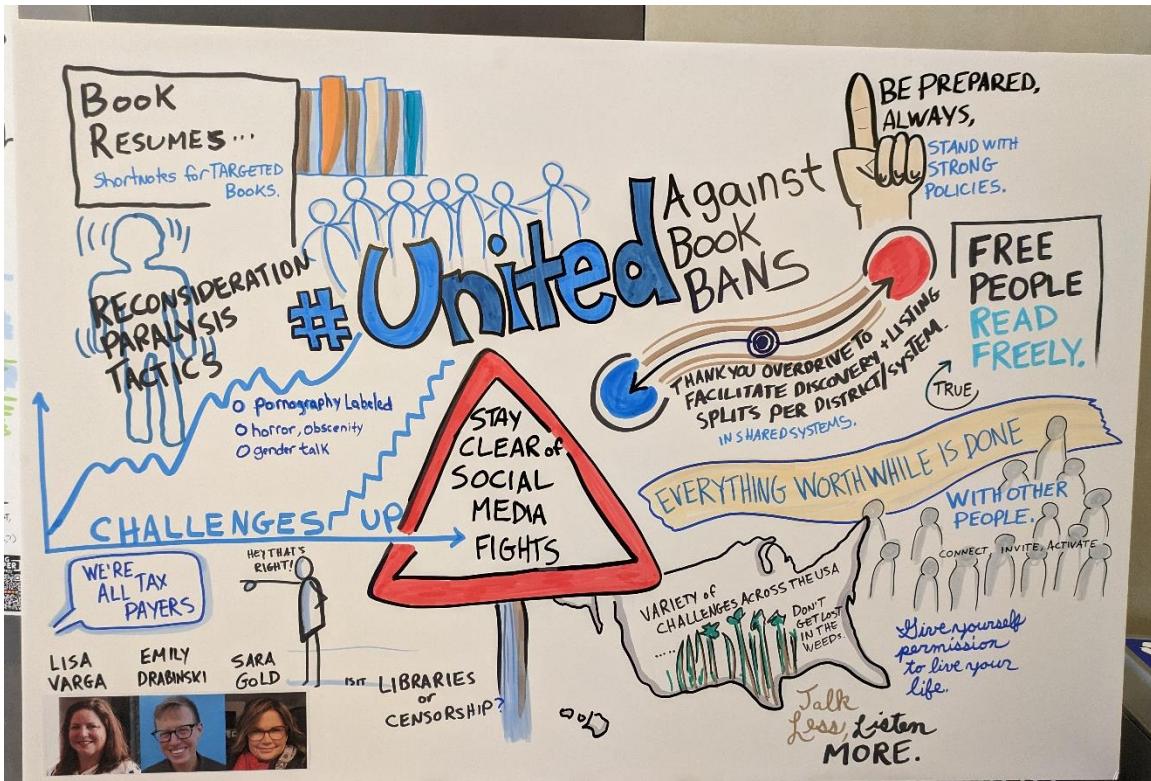 BOOK
RESUMES...
Shortnotes for TARGETED
BOOKS.
RECONSIDERATION
PARALYSIS
TACTICS
#United
Against
BOOK
BANS
BE PREPARED,
ALWAYS,
STAND WITH
STRONG
POLICIES.
FREE
PEOPLE
READ
FREELY.
TRUE,
THANK YOU OVERDRIVE TO
FACILITATE DISCOVERY + LISTING
SPLITS PER DISTRICT/SYSTEM.
IN SHARED SYSTEMS.
pornography Labeled
horror, obscenity
gender talk
CHALLENGES UP
STAY
CLEAR of
SOCIAL
MEDIA
FIGHTS
EVERYTHING WORTHWHILE IS DONE
WITH OTHER
PEOPLE.
CONNECT, INVITE, ACTIVATE
WE'RE
ALL TAX
PAYERS
HEY THAT'S
RIGHT!
LISA
VARGA
EMILY
DRABINSKI
SARA
GOLD
IS IT LIBRARIES
or
CENSORSHIP?
VARIETY of
CHALLENGES ACROSS THE USA
.....
DON'T
GET LOST
IN THE
WEEDS.
Give yourself
permission
to live your
life.
Talk
Less, Listen
MORE.